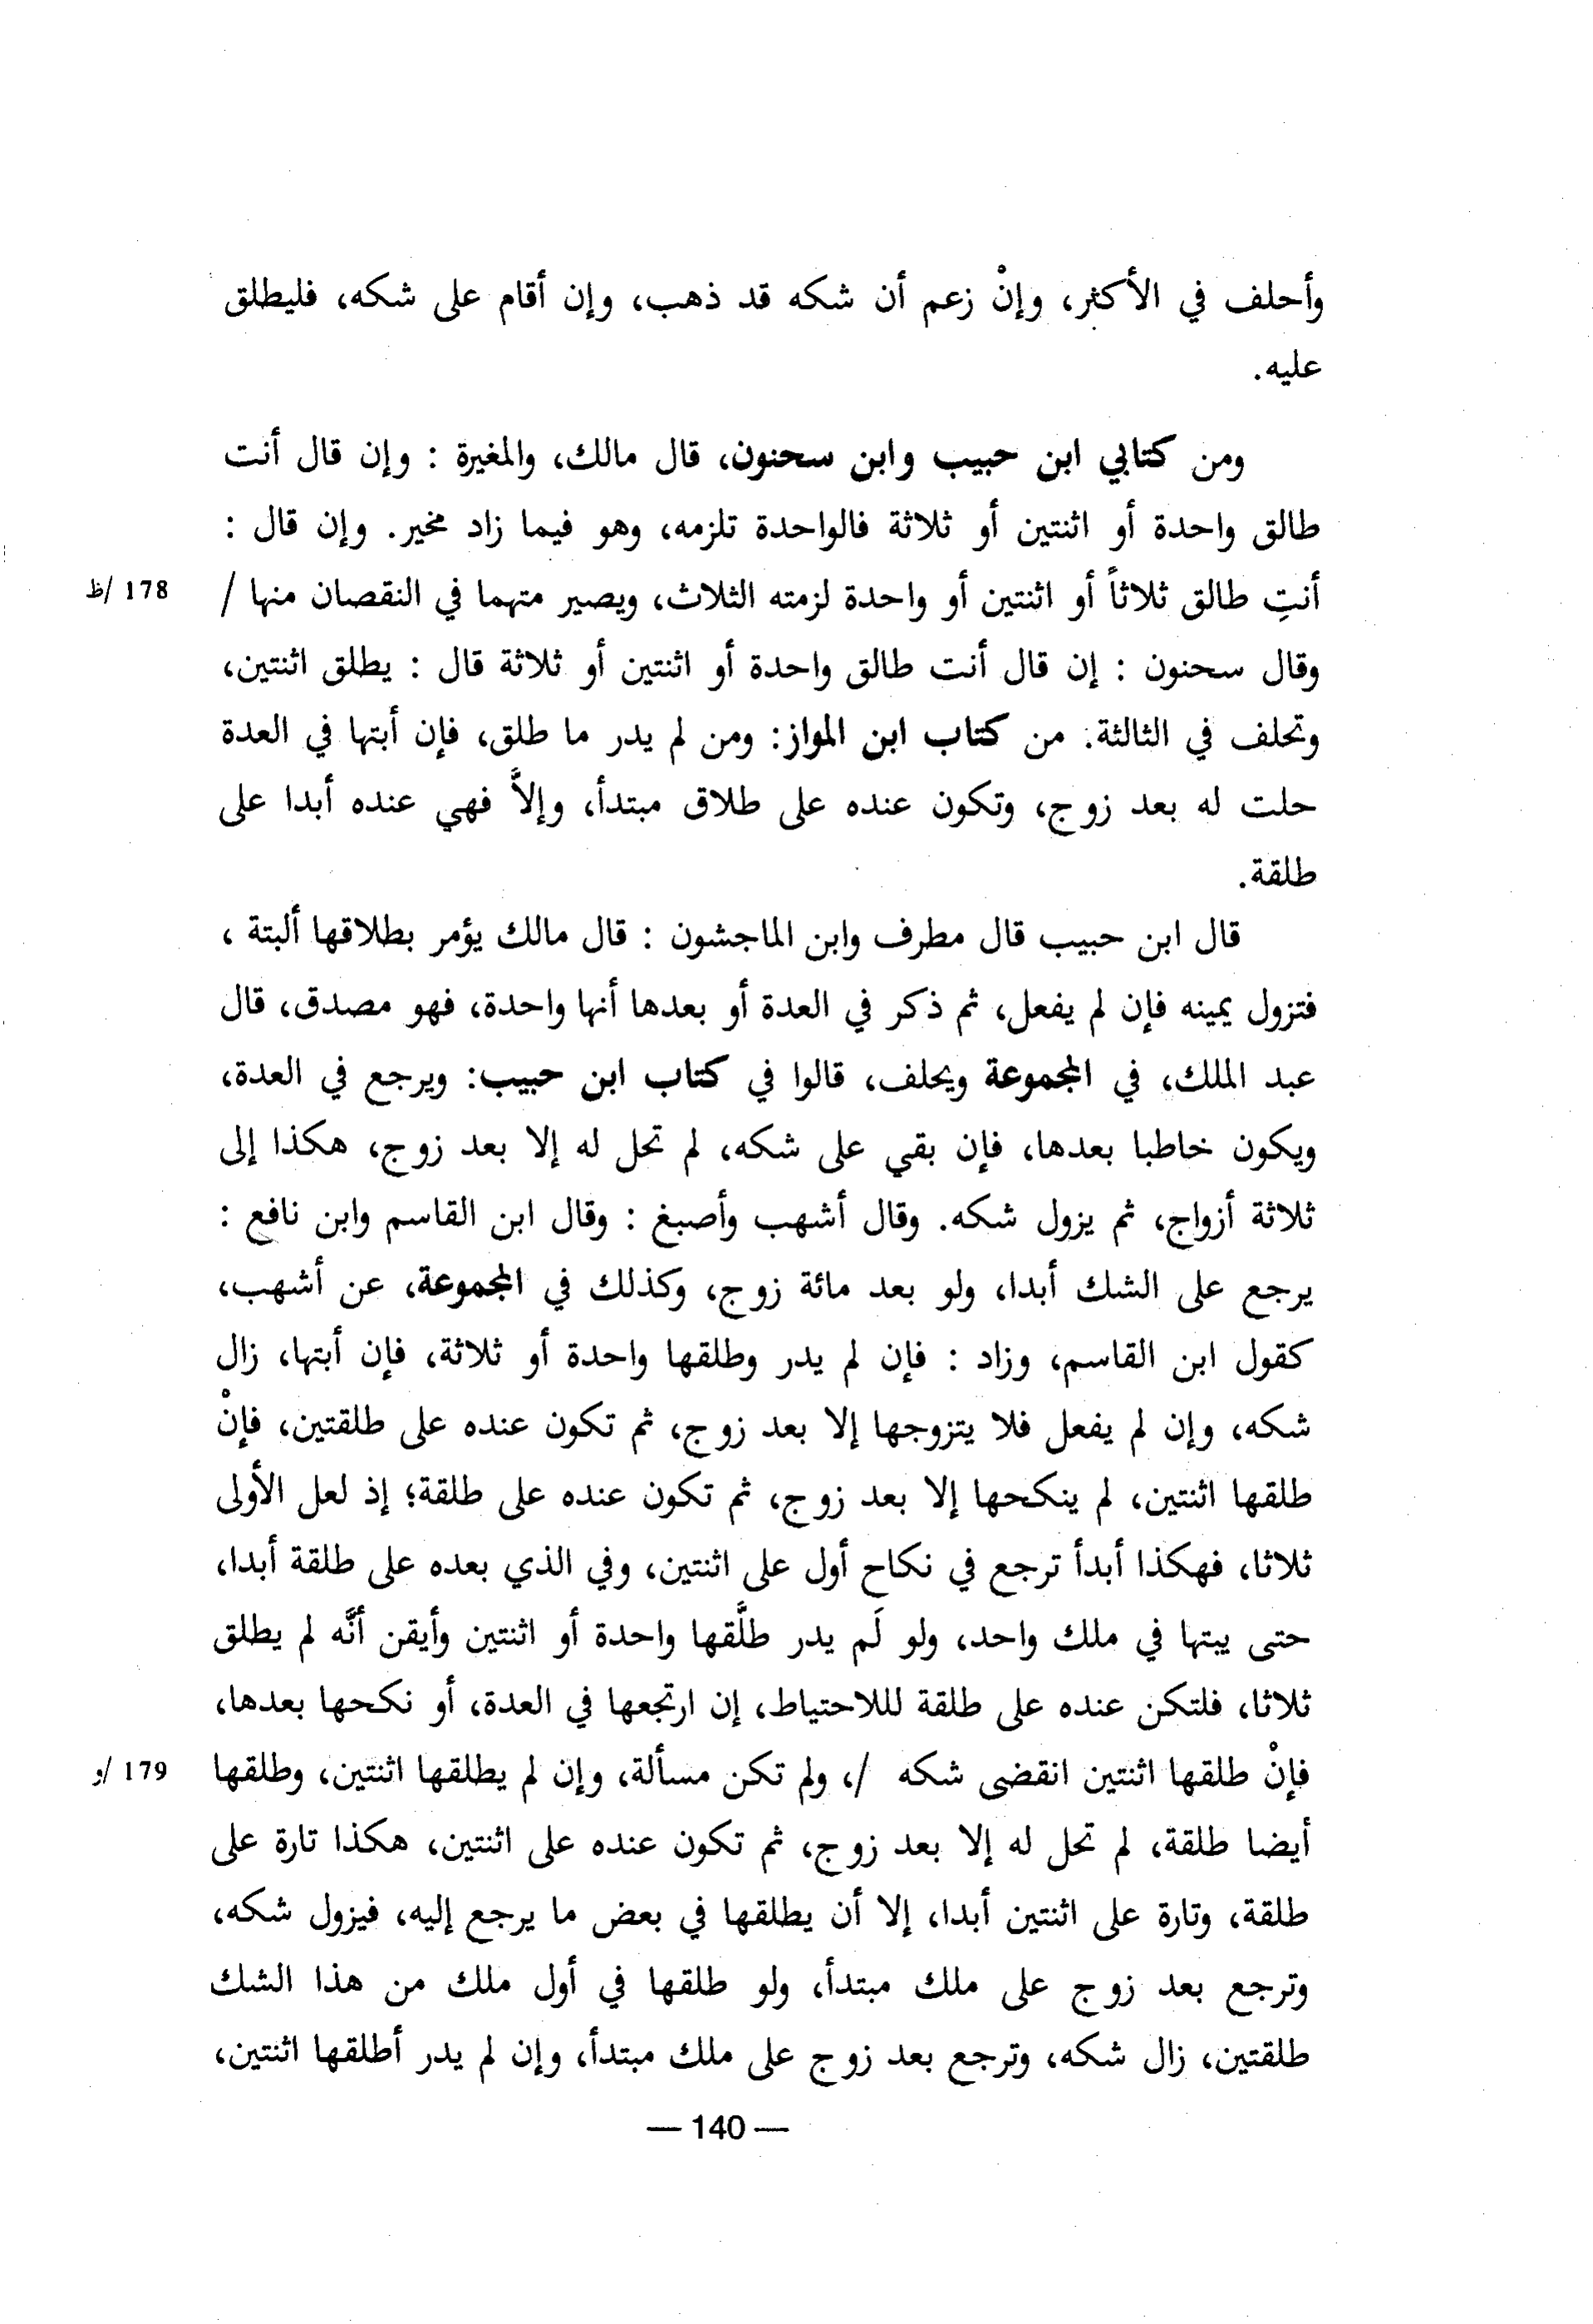 وأحلف في الأكثر، وإنْ زعم أن شكه قد ذهب، وإن أقام على شكه، فليطلق
عليه.
ومن كتابي ابن حبيب وابن سحنون، قال مالك، والمغيرة : وإن قال أنت
طالق واحدة أو اثنتين أو ثلاثة فالواحدة تلزمه، وهو فيما زاد مخير. وإن قال :
أنتِ طالق ثلاثاً أو اثنتين أو واحدة لزمته الثلاث، ويصير متهما في النقصان منها / 178 /ظ
وقال سحنون : إن قال أنت طالق واحدة أو اثنتين أو ثلاثة قال : يطلق اثنتين،
وتحلف في الثالثة. من كتاب ابن المواز: ومن لم يدر ما طلق، فإن أبتها في العدة
حلت له بعد زوج، وتكون عنده على طلاق مبتدأ، وإلاَّ فهي عنده أبدا على
طلقة.
قال ابن حبيب قال مطرف وابن الماجشون : قال مالك يؤمر بطلاقها ألبتة ،
فتزول يمينه فإن لم يفعل، ثم ذكر في العدة أو بعدها أنها واحدة، فهو مصدق، قال
عبد الملك، في المجموعة ويحلف، قالوا في كتاب ابن حبيب: ويرجع في العدة،
ويكون خاطبا بعدها، فإن بقي على شكه، لم تحل له إلا بعد زوج، هكذا إلى
ثلاثة أزواج، ثم يزول شكه. وقال أشهب وأصبغ : وقال ابن القاسم وابن نافع :
يرجع على الشك أبدا، ولو بعد مائة زوج، وكذلك في المجموعة، عن أشهب،
كقول ابن القاسم، وزاد : فإن لم يدر وطلقها واحدة أو ثلاثة، فإن أبتها، زال
شكه، وإن لم يفعل فلا يتزوجها إلا بعد زوج، ثم تكون عنده على طلقتين، فإنْ
طلقها اثنتين، لم ينكحها إلا بعد زوج، ثم تكون عنده على طلقة؛ إذ لعل الأولى
ثلاثا، فهكذا أبدأ ترجع في نكاح أول على اثنتين، وفي الذي بعده على طلقة أبدا،
حتى يبتها في ملك واحد، ولو لَم يدر طلَّقها واحدة أو اثنتين وأيقن أنَّه لم يطلق
ثلاثا، فلتكن عنده على طلقة لللاحتياط، إن ارتجعها في العدة، أو نكحها بعدها،
فإنْ طلقها اثنتين انقضى شكه /، ولم تكن مسألة، وإن لم يطلقها اثنتين، وطلقها 179 /و
أيضا طلقة، لم تحل له إلا بعد زوج، ثم تكون عنده على اثنتين، هكذا تارة على
طلقة، وتارة على اثنتين أبدا، إلا أن يطلقها في بعض ما يرجع إليه، فيزول شكه،
وترجع بعد زوج على ملك مبتدأ، ولو طلقها في أول ملك من هذا الشك
طلقتين، زال شكه، وترجع بعد زوج على ملك مبتدأ، وإن لم يدر أطلقها اثنتين،
— 140 —